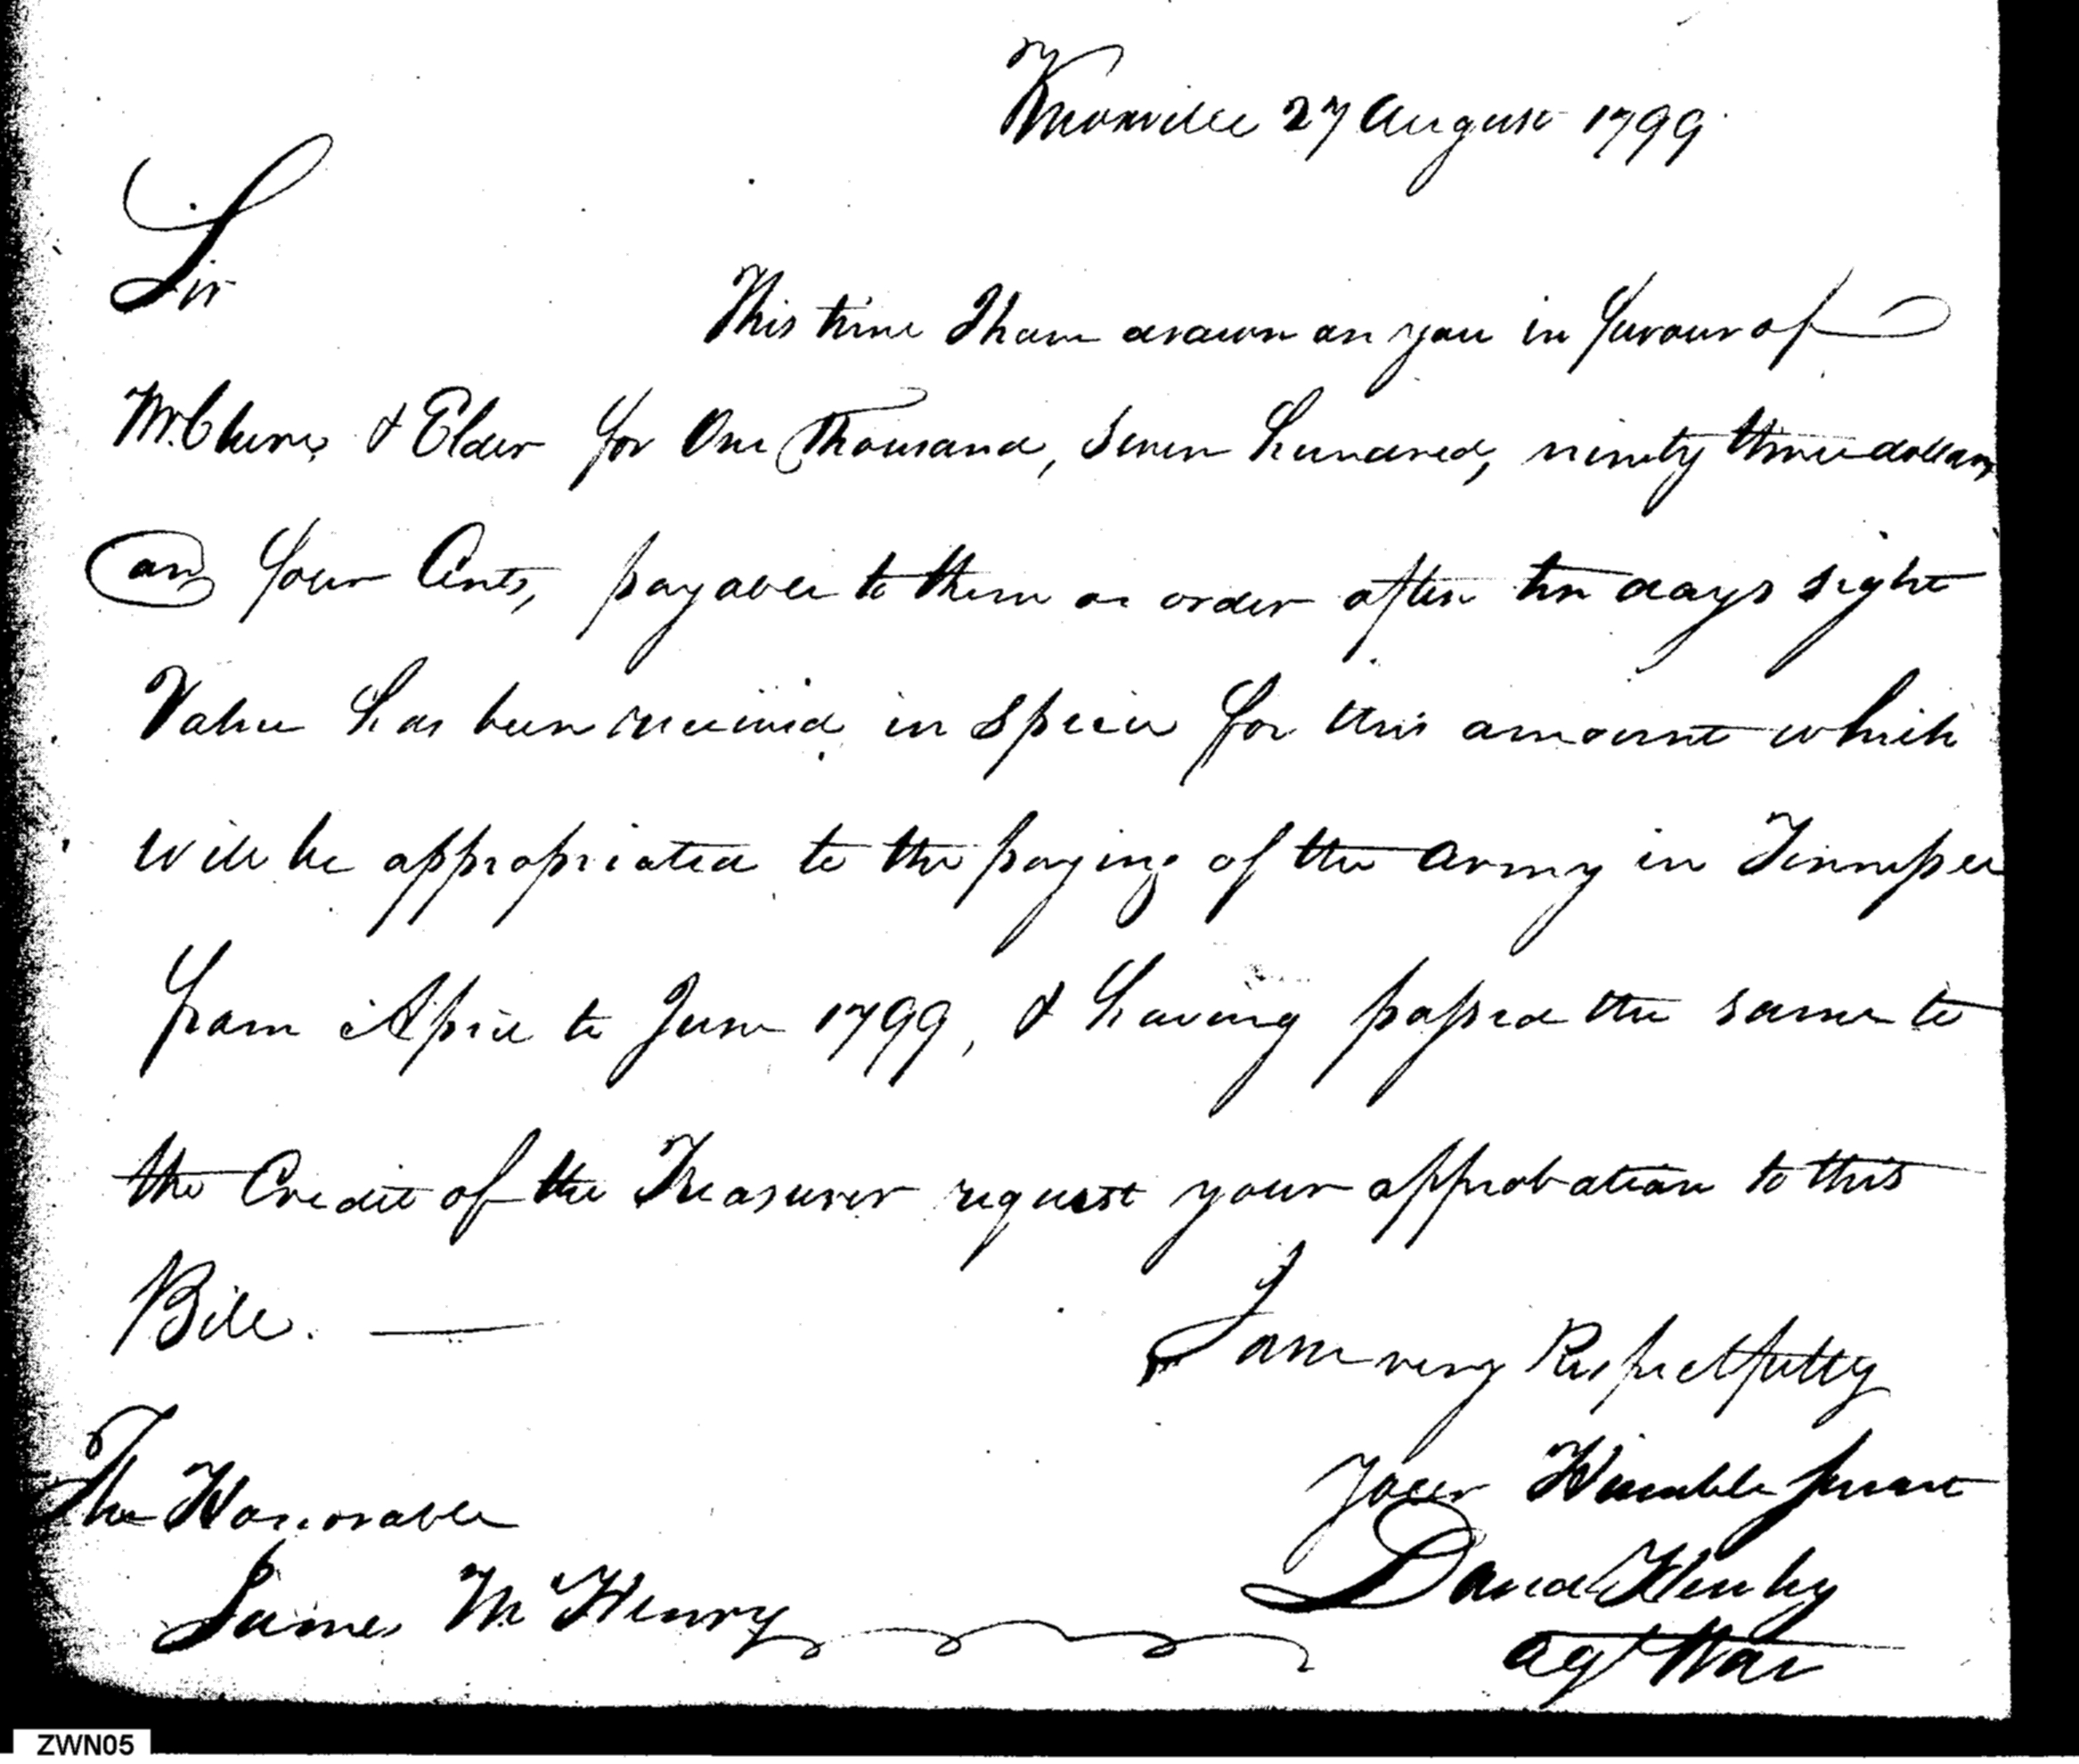 Knoxville 27 August 1799.
Sir
This time I have drawn on you in favour of
McClure & Elder for One Thousand, Seven hundred, ninety three dollars
and four Cents, payable to them or order after ten days sight
Value has been received in Specie for this amount which
will be appropriated to the paying of the Army in Tennessee
from April to June 1799, & having passed the same to
the Credit of the Treasurer request your approbation to this
Bill.
I am very Respectfully
Your Humble Servant
The Honorable
David Henley
James McHenry
agt War
ZWN05